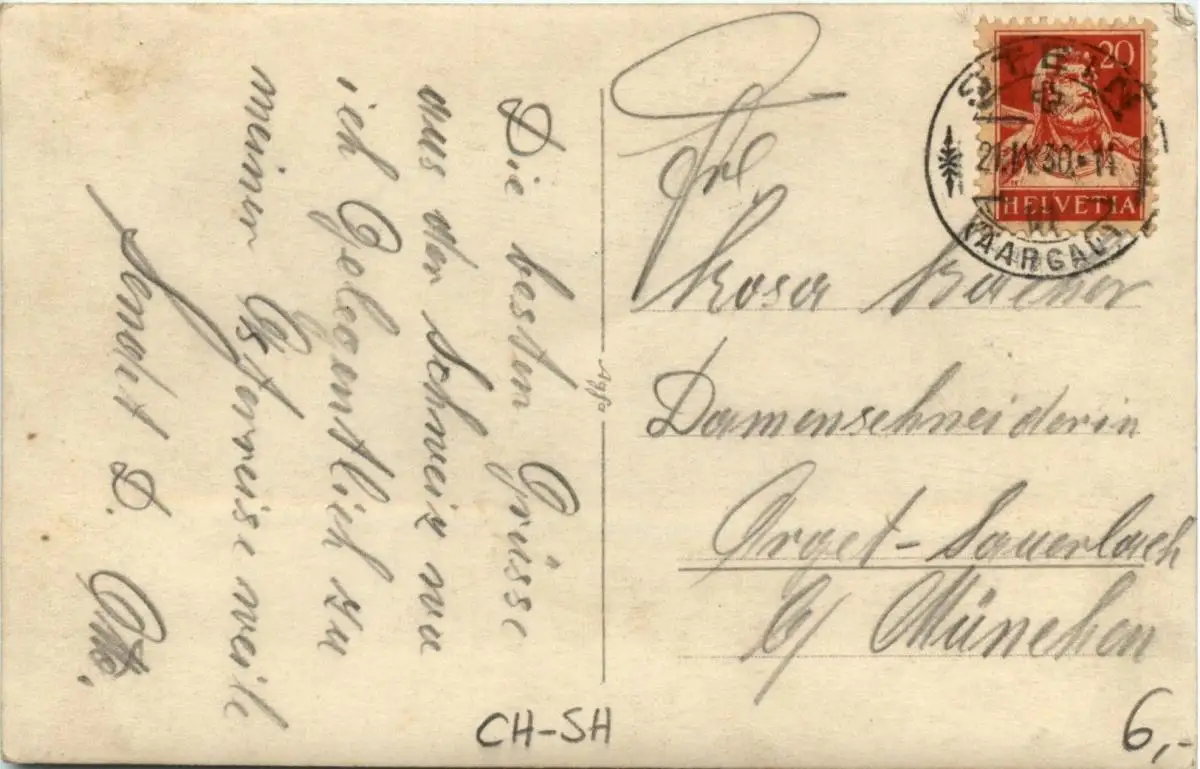 Die besten Grüsse
aus der Schweiz wo
ich Gelegentlich zu
meiner Osterreise weile
sendet D. Otto.
Agfa
Frl
Rosa
Damenschneiderin
Arget-Sauerlach
b/ München
20
HELVETIA
STEIN
21.IV.30.-11
(AARGAU)
CH-SH
6,-